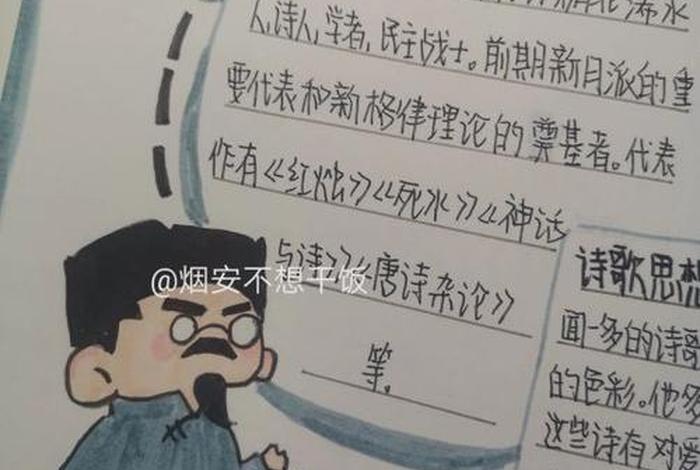 浠水
人,诗人,学者,民主战士。前期新月派的重
要代表和新格律理论的奠基者。代表
作有《红烛》《死水》《神话
与诗》《唐诗杂论》
等。
@烟安不想干饭
诗歌思想
闻一多的诗歌
的色彩。他
这些诗有对爱